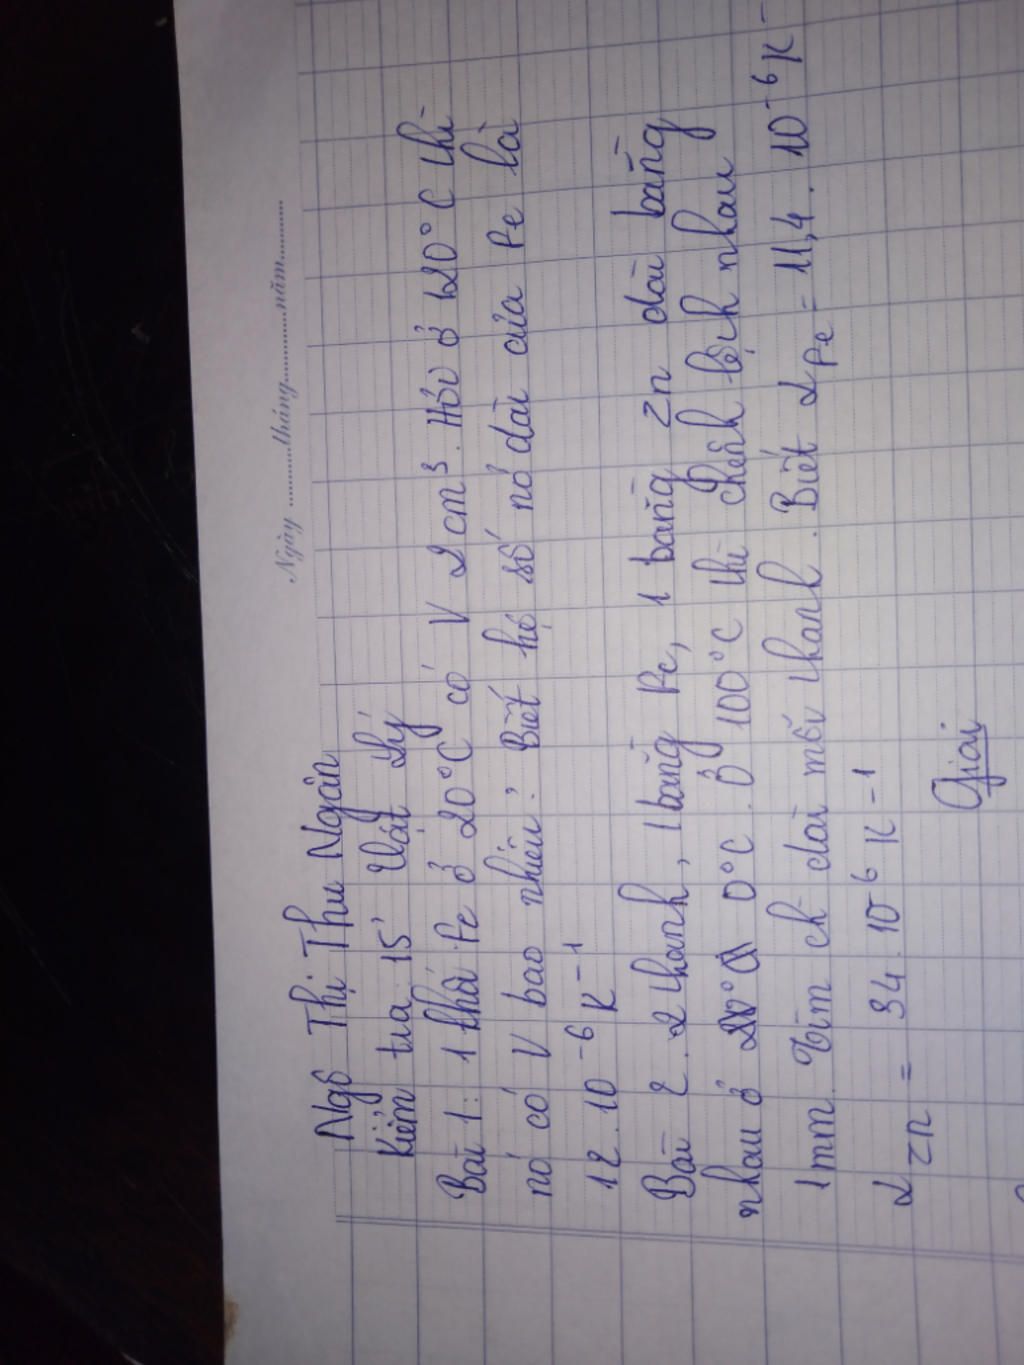 Ngày ............tháng............năm............
Ngô Thị Thu Ngân
Kiểm tra 15' Vật Lý
Bài 1: 1 khối Fe ở 20°C có V 2cm³. Hỏi ở 120°C thì
nó có V bao nhiêu? Biết hệ số nở dài của Fe là
12.10⁻⁶ K⁻¹
Bài 2. 2 thanh, 1 bằng Fe, 1 bằng Zn dài bằng
nhau ở 0°C. Ở 100°C thì chênh lệch nhau
1mm. Tìm ch dài mỗi thanh. Biết α Fe = 11,4. 10⁻⁶ K⁻
α Zn = 34. 10⁻⁶ K⁻¹
Giải